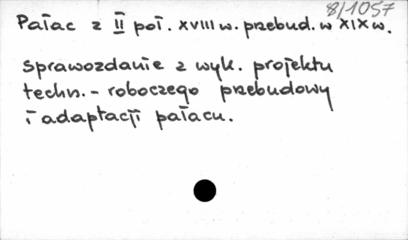 8/1057
Pałac z II poł. XVIII w. przebud. w XIX w.
Sprawozdanie z wyk. projektu
techn. - roboczego przebudowy
i adaptacji pałacu.